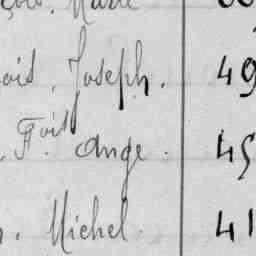 Marie
ois. Joseph. 49
F^ois Ange. 45
. Michel. 41